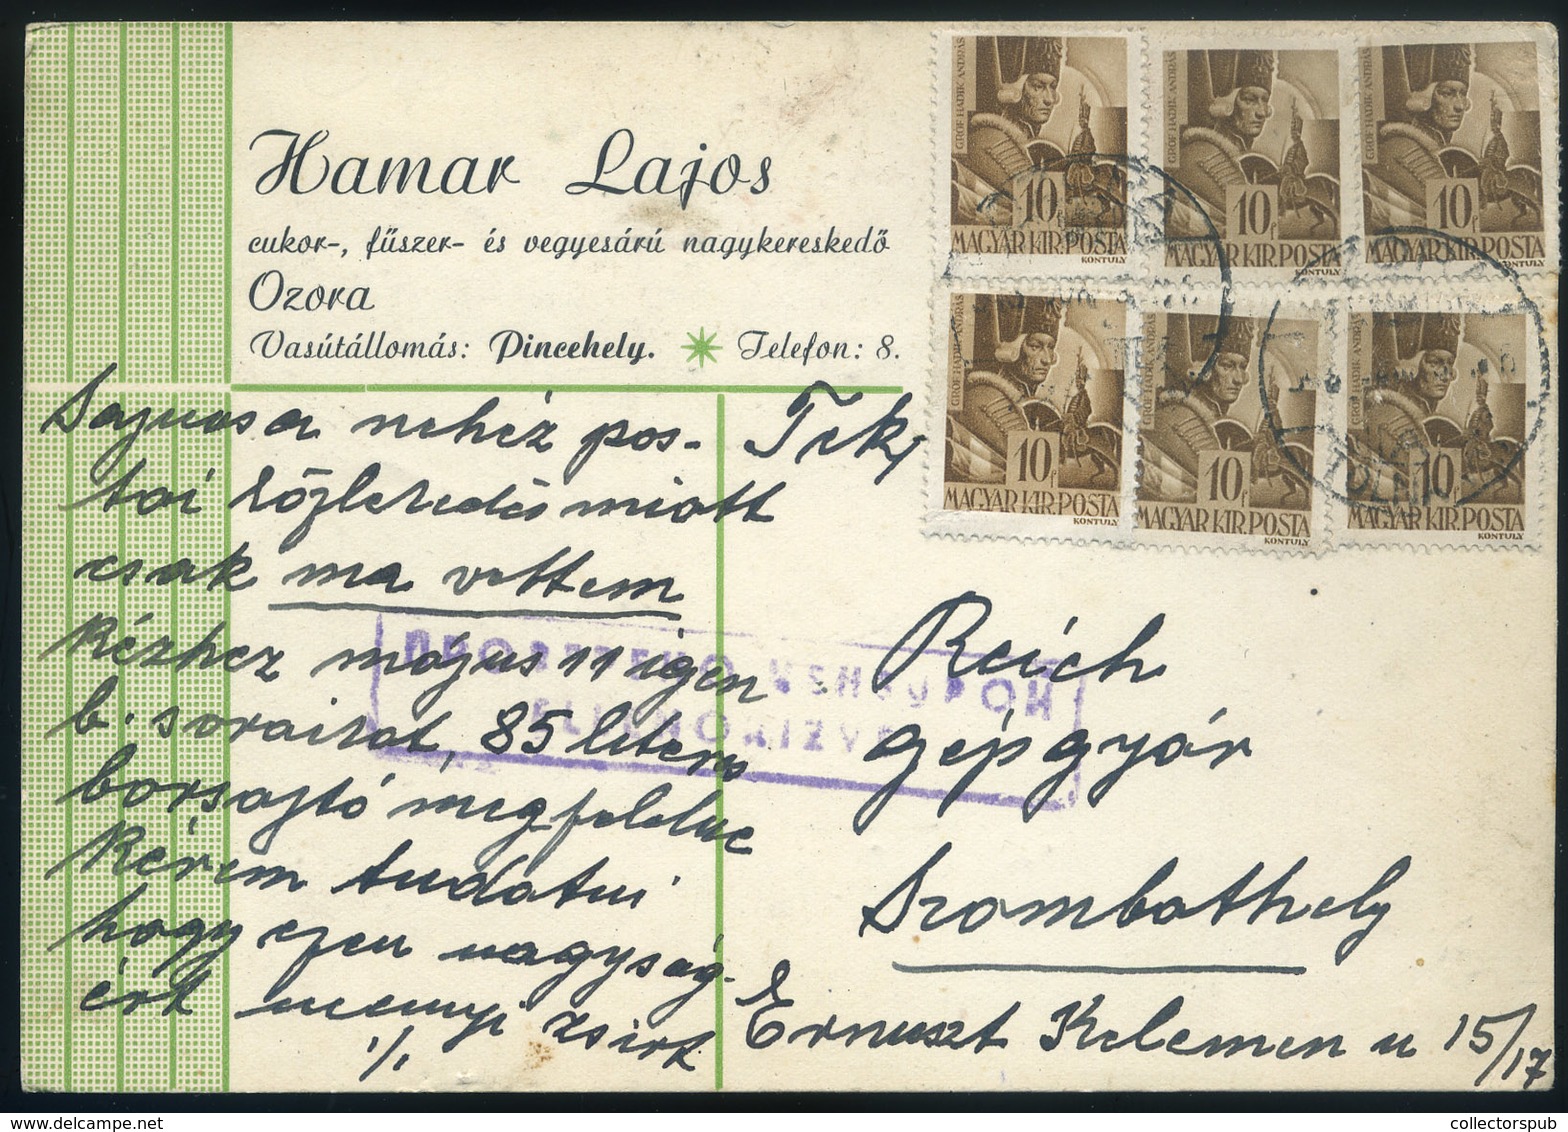 Hamar Lajos
cukor-, fűszer- és vegyesárú nagykereskedő
Ozora
Vasútállomás: Pincehely. Telefon: 8.
GRÓF HADIK ANDRÁS
10f
MAGYAR KIR. POSTA
KONTULY
GRÓF HADIK ANDRÁS
10f
MAGYAR KIR. POSTA
KONTULY
GRÓF HADIK ANDRÁS
10f
MAGYAR KIR. POSTA
KONTULY
GRÓF HADIK ANDRÁS
10f
MAGYAR KIR. POSTA
KONTULY
GRÓF HADIK ANDRÁS
10f
MAGYAR KIR. POSTA
KONTULY
GRÓF HADIK ANDRÁS
10f
MAGYAR KIR. POSTA
KONTULY
Sajnos a nehéz pos-
tai közlekedés miatt
csak ma vettem
kézhez május 11 igen
b. sorait, 85 literes
borsajtó megfelelne
Kérem tudatni
hogy ezen nagyság-
ért mennyi zsirt
1/.
Tek,
Reich
gépgyár
Szombathely
Ernuszt Kelemen u 15/17
collectorspub